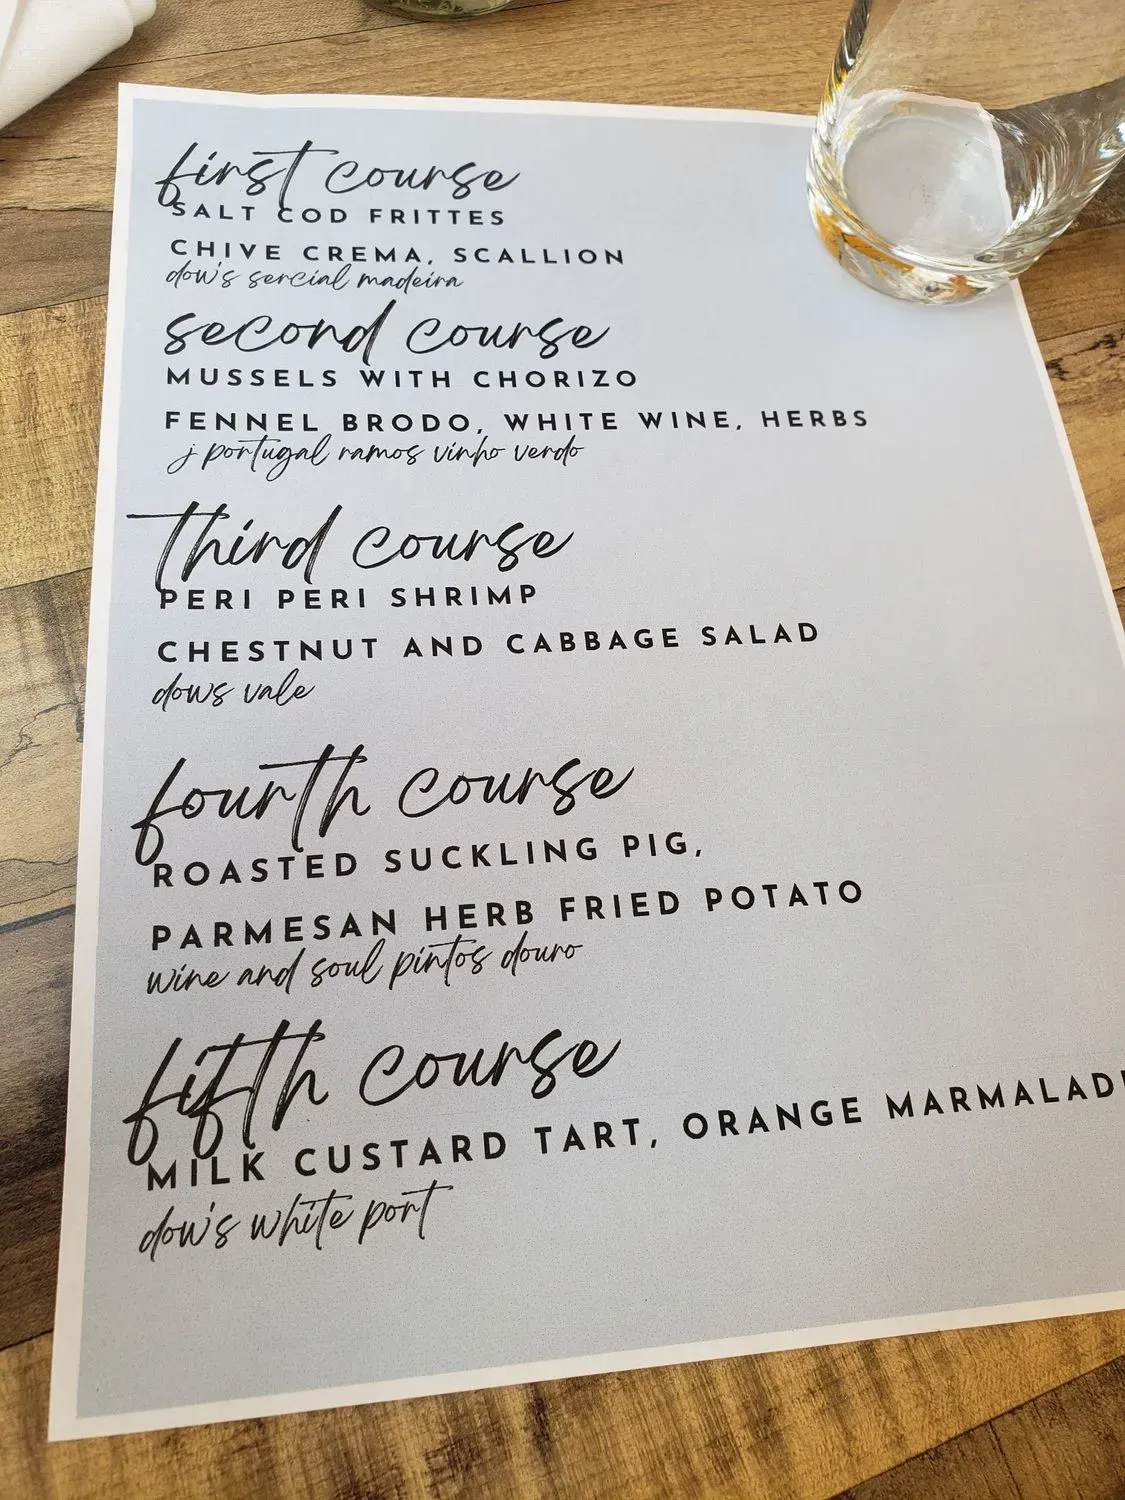 first course
SALT COD FRITTES
CHIVE CREMA, SCALLION
dow's sercial madeira
second course
MUSSELS WITH CHORIZO
FENNEL BRODO, WHITE WINE, HERBS
j portugal ramos vinho verdo
third course
PERI PERI SHRIMP
CHESTNUT AND CABBAGE SALAD
dows vale
fourth course
ROASTED SUCKLING PIG,
PARMESAN HERB FRIED POTATO
wine and soul pintos douro
fifth course
MILK CUSTARD TART, ORANGE MARMALAD
dow's white port